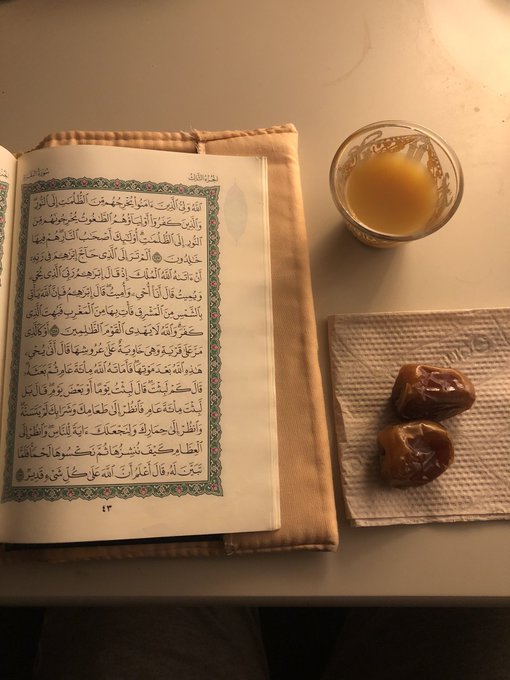 الجُزْءُ الثَّالِثُ
سُورَةُ
ٱللَّهُ وَلِيُّ ٱلَّذِينَ ءَامَنُواْ يُخْرِجُهُم مِّنَ ٱلظُّلُمَٰتِ إِلَى ٱلنُّورِۖ
وَٱلَّذِينَ كَفَرُوٓاْ أَوْلِيَآؤُهُمُ ٱلطَّٰغُوتُ يُخْرِجُونَهُم مِّنَ
ٱلنُّورِ إِلَى ٱلظُّلُمَٰتِۗ أُوْلَٰٓئِكَ أَصْحَٰبُ ٱلنَّارِۖ هُمْ فِيهَا
خَٰلِدُونَ أَلَمْ تَرَ إِلَى ٱلَّذِي حَآجَّ إِبْرَٰهِـۧمَ فِي رَبِّهِۦٓ
أَنْ ءَاتَىٰهُ ٱللَّهُ ٱلْمُلْكَ إِذْ قَالَ إِبْرَٰهِـۧمُ رَبِّيَ ٱلَّذِي يُحْيِۦ
وَيُمِيتُ قَالَ أَنَا۠ أُحْيِۦ وَأُمِيتُۖ قَالَ إِبْرَٰهِـۧمُ فَإِنَّ ٱللَّهَ يَأْتِي
بِٱلشَّمْسِ مِنَ ٱلْمَشْرِقِ فَأْتِ بِهَا مِنَ ٱلْمَغْرِبِ فَبُهِتَ ٱلَّذِي
كَفَرَۗ وَٱللَّهُ لَا يَهْدِي ٱلْقَوْمَ ٱلظَّٰلِمِينَ أَوْ كَٱلَّذِي
مَرَّ عَلَىٰ قَرْيَةٍ وَهِيَ خَاوِيَةٌ عَلَىٰ عُرُوشِهَا قَالَ أَنَّىٰ يُحْيِۦ
هَٰذِهِ ٱللَّهُ بَعْدَ مَوْتِهَاۖ فَأَمَاتَهُ ٱللَّهُ مِاْئَةَ عَامٍ ثُمَّ بَعَثَهُۥۖ
قَالَ كَمْ لَبِثْتَۖ قَالَ لَبِثْتُ يَوْمًا أَوْ بَعْضَ يَوْمٍۖ قَالَ بَل
لَّبِثْتَ مِاْئَةَ عَامٍ فَٱنظُرْ إِلَىٰ طَعَامِكَ وَشَرَابِكَ لَمْ يَتَسَنَّهْۖ
وَٱنظُرْ إِلَىٰ حِمَارِكَ وَلِنَجْعَلَكَ ءَايَةً لِّلنَّاسِۖ وَٱنظُرْ إِلَى
ٱلْعِظَامِ كَيْفَ نُنشِزُهَا ثُمَّ نَكْسُوهَا لَحْمًاۚ فَلَمَّا
تَبَيَّنَ لَهُۥ قَالَ أَعْلَمُ أَنَّ ٱللَّهَ عَلَىٰ كُلِّ شَيْءٍ قَدِيرٌ
٤٣